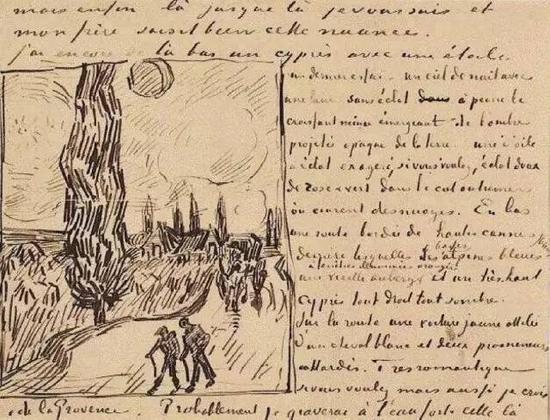 mais enfin là jusque là je vous suis et
mon frère saisit bien cette nuance.
J'ai encore de là bas un cyprès avec une étoile
un dernier essai – un ciel de nuit avec
une lune sans éclat à peine le
croissant mince émergeant de l'ombre
projetée opaque de la terre – une étoile
à éclat exagéré, si vous voulez, éclat doux
de rose & vert dans le ciel outremer
où courent des nuages. En bas
une route bordée de hautes cannes jaunes
derrière lesquelles les basses alpines bleues
à fenêtres illuminées orangée
une vieille auberge et un très haut
cyprès tout droit tout sombre.
Sur la route une voiture jaune attelée
d'un cheval blanc et deux promeneurs
attardés. Très romantique
si vous voulez mais aussi je crois
de la Provence. Probablement je graverai à l'eau forte celle là